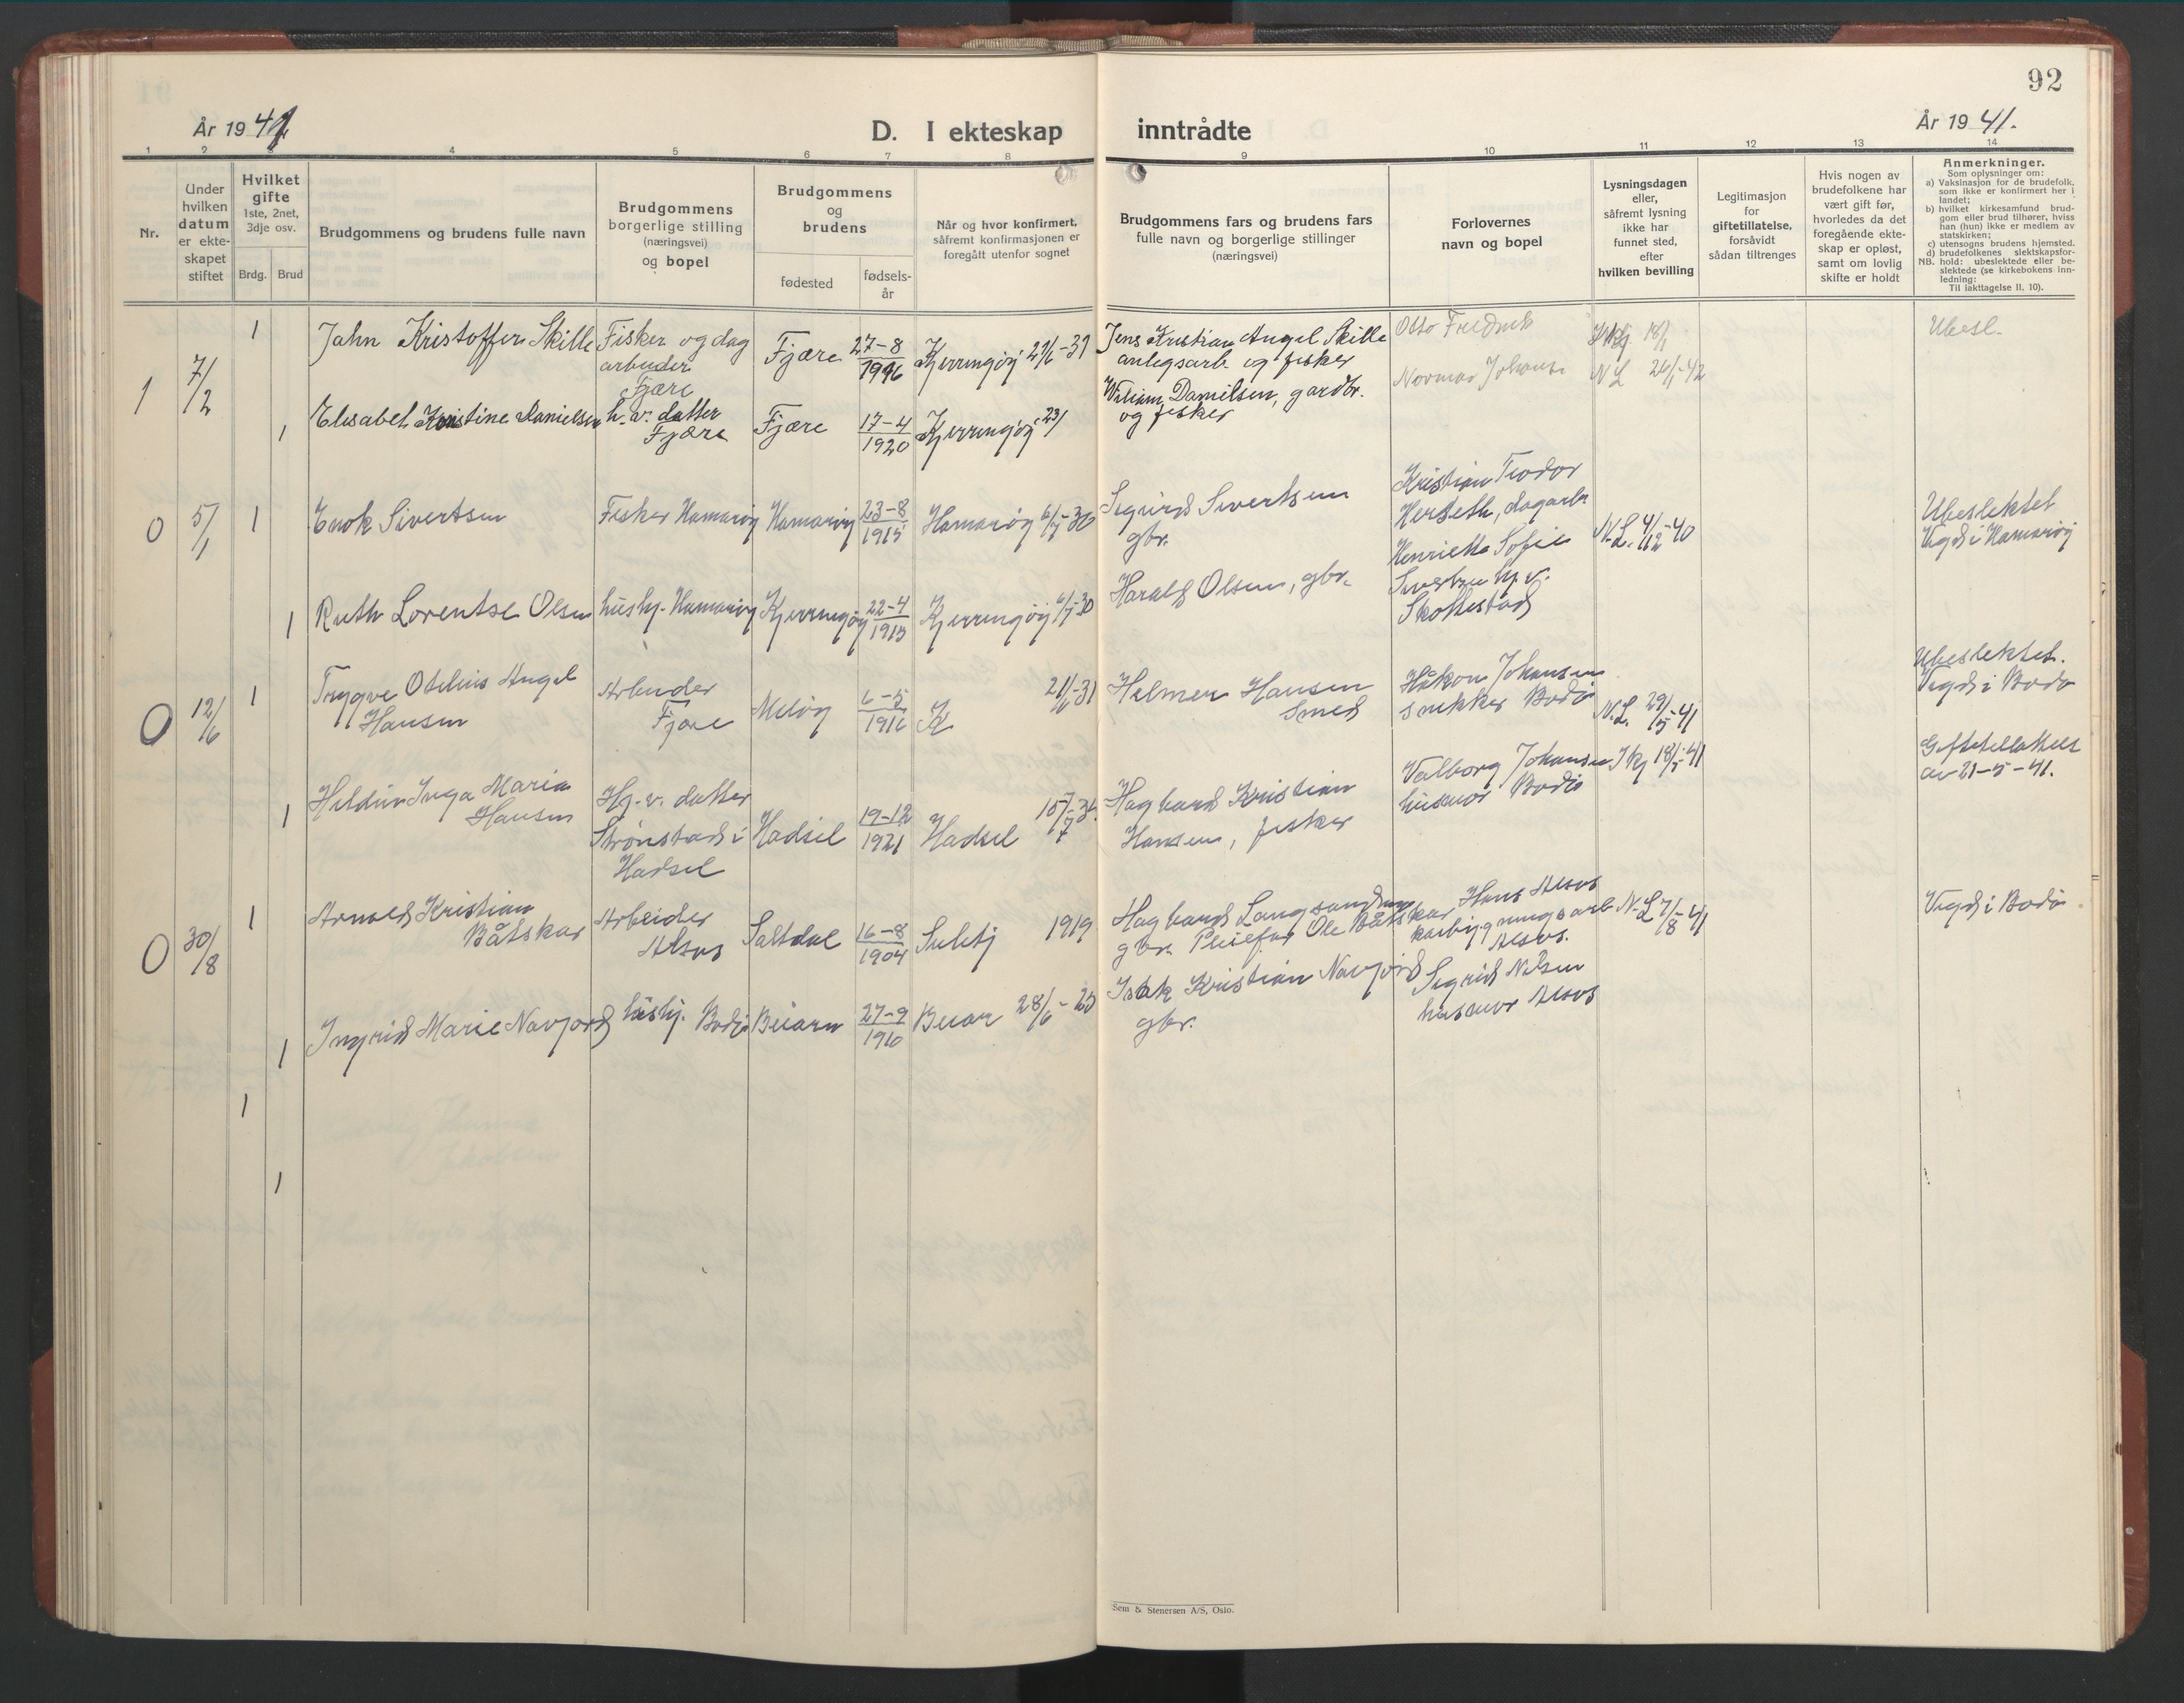 92
År 1941
D. I ekteskap inntrådte
År 1941.
1 2 3 4 5 6 7 8 9 10 11 12 13 14
Nr.
Under
hvilken
datum
er ekte-
skapet
stiftet
Hvilket
gifte
1ste, 2net,
3dje osv.
Brdg. Brud
Brudgommens og brudens fulle navn
Brudgommens
borgerlige stilling
(næringsvei)
og bopel
Brudgommens
og
brudens
fødested
fødsels-
år
Når og hvor konfirmert,
såfremt konfirmasjonen er
foregått utenfor sognet
Brudgommens fars og brudens fars
fulle navn og borgerlige stillinger
(næringsvei)
Forlovernes
navn og bopel
Lysningsdagen
eller,
såfremt lysning
ikke har
funnet sted,
efter
hvilken bevilling
Legitimasjon
for
giftetillatelse,
forsåvidt
sådan tiltrenges
Hvis nogen av
brudefolkene har
vært gift før,
hvorledes da det
foregående ekte-
skap er opløst,
samt om lovlig
skifte er holdt
Anmerkninger.
Som oplysninger om:
a) Vaksinasjon for de brudefolk,
som ikke er konfirmert her i
landet;
b) hvilket kirkesamfund brud-
gom eller brud tilhører, hviss
han (hun) ikke er medlem av
statskirken;
c) utensogns brudens hjemsted.
d) brudefolkenes slektskapsfor-
NB. hold: ubeslektede eller be-
slektede (se kirkebokens inn-
ledning:
Til iakttagelse II. 10).
1
7/2
1
Jahn Kristoffer Skille
Fisker og dag
arbeider
Fjære
Fjære
27-8
1916
Kjerringøy 21/6-31
Jens Kristian Angel Skille
anlegsarb. og fisker
Otto Fredrik
18/1
Ubesl.
1
Elisabet Kristine Danielsen
h.v. datter
Fjære
Fjære
17-4
1920
Kjerringøy
Wiliam Danielsen, gardbr.
og fisker
Normar Johans
N L 26/1-42
0
5/1
1
Enok Sivertsen
Fisker Hamarøy
Hamarøy
23-8
1915
Hamarøy 6/7-30
Sigurd Sivertsen
gbr.
Kristian Teodor
Herseth, dagarb.
Henriette Sofie
Sivertsen h.v.
Skottestad
N.L. 4/12-40
Ubeslektet
Vigd i Hamarøy
1
Ruth Lorentse Olsen
hushj. Hamarøy
Kjerringøy
22-4
1915
Kjerringøy 6/7-30
Harald Olsen, gbr.
0
12/6
1
Trygve Otelius Angel
Hansen
Arbeider
Fjære
Meløy
6-5
1916
K 21/6-31
Helmer Hansen
Smed
Håkon Johansen
snekker Bodø
N.L. 29/5-41
Ubeslektet.
Vigd i Bodø
1
Heldine Inga Maria
Hansen
Hj.v. datter
Strønstad i
Hadsel
Hadsel
19-12
1921
Hadsel
Hagbard Kristian
Hansen, fisker
Valborg Johansen
husmor Bodø
18/5-41
Giftetillatelse
av 21-5-41.
0
30/8
1
Arnold Kristian
Båtskar
Arbeider
Alsos
Saltdal
16-8
1904
Sulitj 1919
Hagbard Langsand
gbr. Pleiefar Ole Båtskar
Hans Alsos
Alsos.
N.L 7/8-41
Vigd i Bodø
1
Ingrid Marie Navjord
hushj. Bodø
Beiarn
27-9
1910
Beiar 28/6-25
Isak Kristian Navjord
gbr.
Sigrid Nilsen
husmor Alsos
1
1
Sem & Stenersen A/S, Oslo.